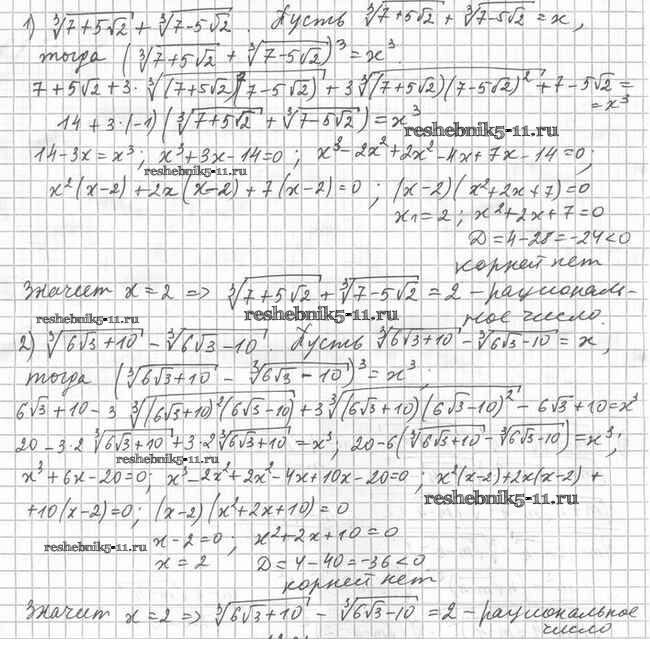 1) ∛(7+5√2) + ∛(7-5√2). Пусть ∛(7+5√2) + ∛(7-5√2) = x,
тогда (∛(7+5√2) + ∛(7-5√2))³ = x³.
7+5√2+3·∛((7+5√2)²(7-5√2)) + 3∛((7+5√2)(7-5√2)²) + 7-5√2 =
= x³
14+3·(-1)(∛(7+5√2) + ∛(7-5√2)) = x³
reshebnik5-11.ru
14-3x=x³; x³+3x-14=0; x³-2x²+2x²-4x+7x-14=0;
reshebnik5-11.ru
x²(x-2)+2x(x-2)+7(x-2)=0; (x-2)(x²+2x+7)=0
x₁=2; x²+2x+7=0
reshebnik5-11.ru
D=4-28=-24<0
корней нет
Значит x=2 => ∛(7+5√2) + ∛(7-5√2) = 2 - рациональ-
reshebnik5-11.ru
reshebnik5-11.ru
ное число.
2) ∛(6√3+10) - ∛(6√3-10). Пусть ∛(6√3+10) - ∛(6√3-10) = x,
тогда (∛(6√3+10) - ∛(6√3-10))³ = x³.
6√3+10-3∛((6√3+10)²(6√3-10)) + 3∛((6√3+10)(6√3-10)²) - 6√3+10=x³
20-3·2∛(6√3+10)+3·2∛(6√3+10)=x³; 20-6(∛(6√3+10)-∛(6√3-10))=x³;
reshebnik5-11.ru
x³+6x-20=0; x³-2x²+2x²-4x+10x-20=0; x²(x-2)+2x(x-2)+
reshebnik5-11.ru
+10(x-2)=0; (x-2)(x²+2x+10)=0
reshebnik5-11.ru
x-2=0; x²+2x+10=0
x=2 D=4-40=-36<0
корней нет
Значит x=2 => ∛(6√3+10) - ∛(6√3-10) = 2 - рациональное
число